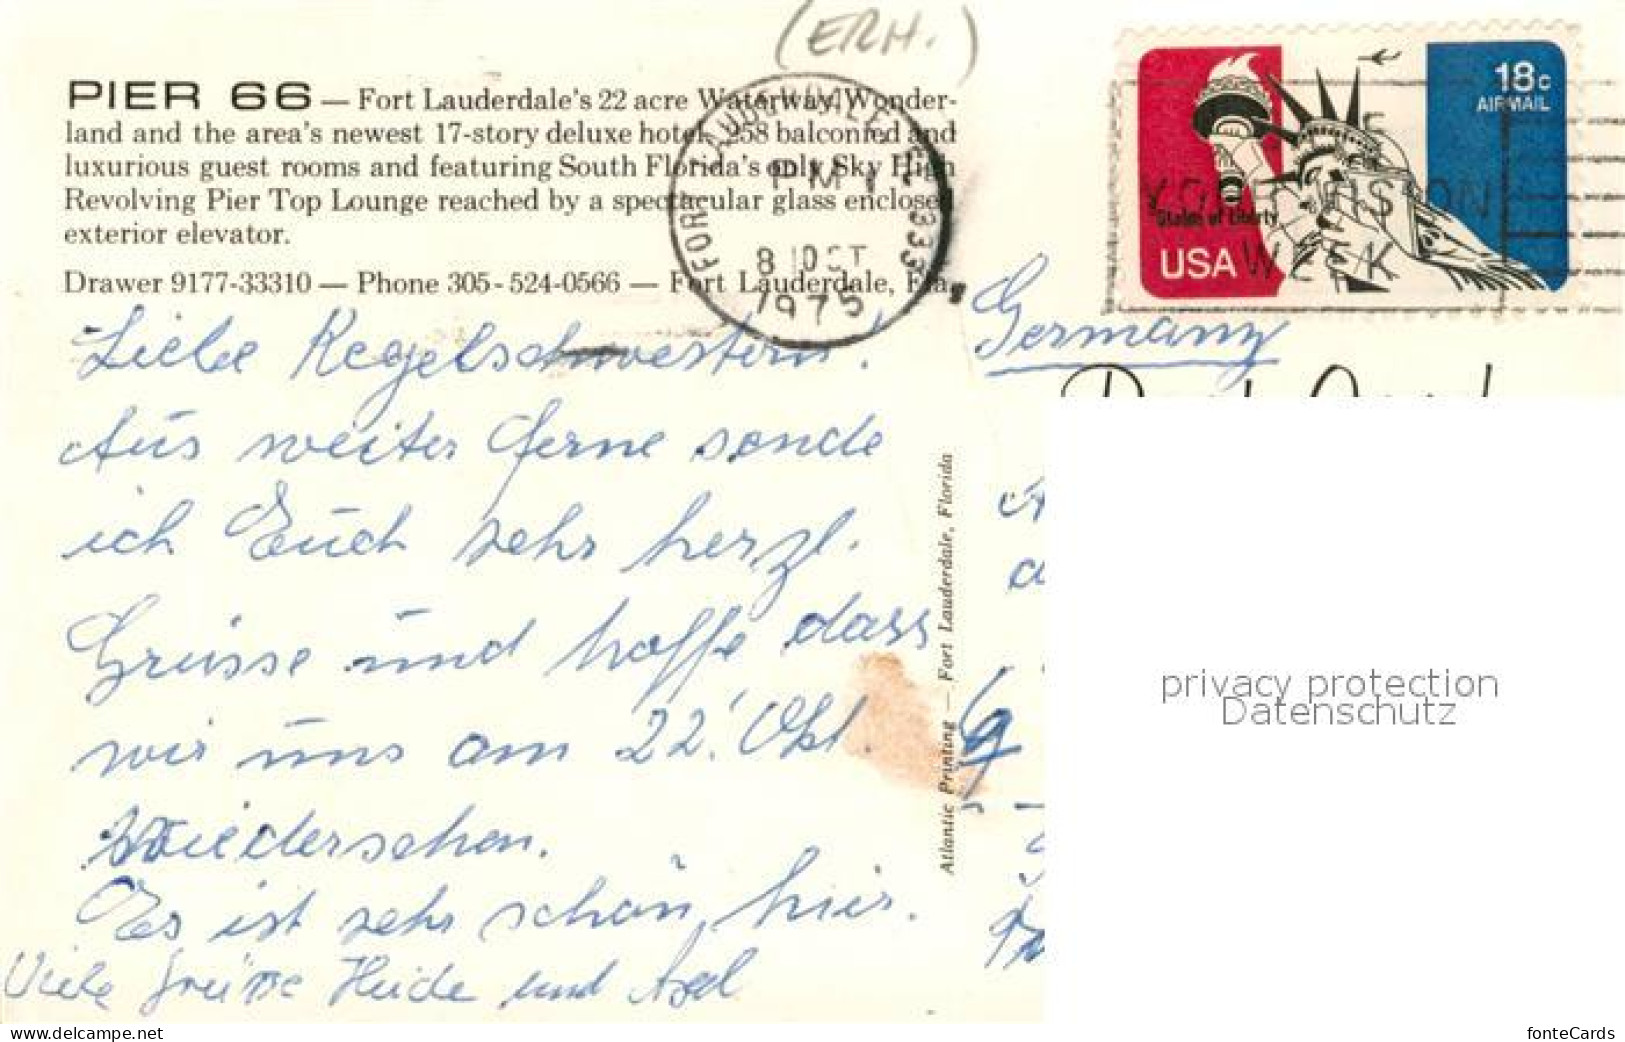 (ERH.)
PIER 66 — Fort Lauderdale's 22 acre Waterway Wonder-
land and the area's newest 17-story deluxe hotel. 258 balconied and
luxurious guest rooms and featuring South Florida's only Sky High
Revolving Pier Top Lounge reached by a spectacular glass enclosed
exterior elevator.
Drawer 9177-33310 — Phone 305-524-0566 — Fort Lauderdale, Fla.
FORT LAUDERDALE, FL 333
PM
8 OCT
1975
18c
AIRMAIL
Statue of Liberty
USA
YOUR VISION
WEEK
Liebe Kegelschwestern!
Aus weiter Ferne sende
ich Euch sehr herzl.
Grüsse und hoffe dass
wir uns am 22. Okt.
wiedersehen.
Es ist sehr schön hier.
Viele Grüsse Heide und Axel
Atlantic Printing — Fort Lauderdale, Florida
Germany
privacy protection
Datenschutz
www.delcampe.net
fonteCards